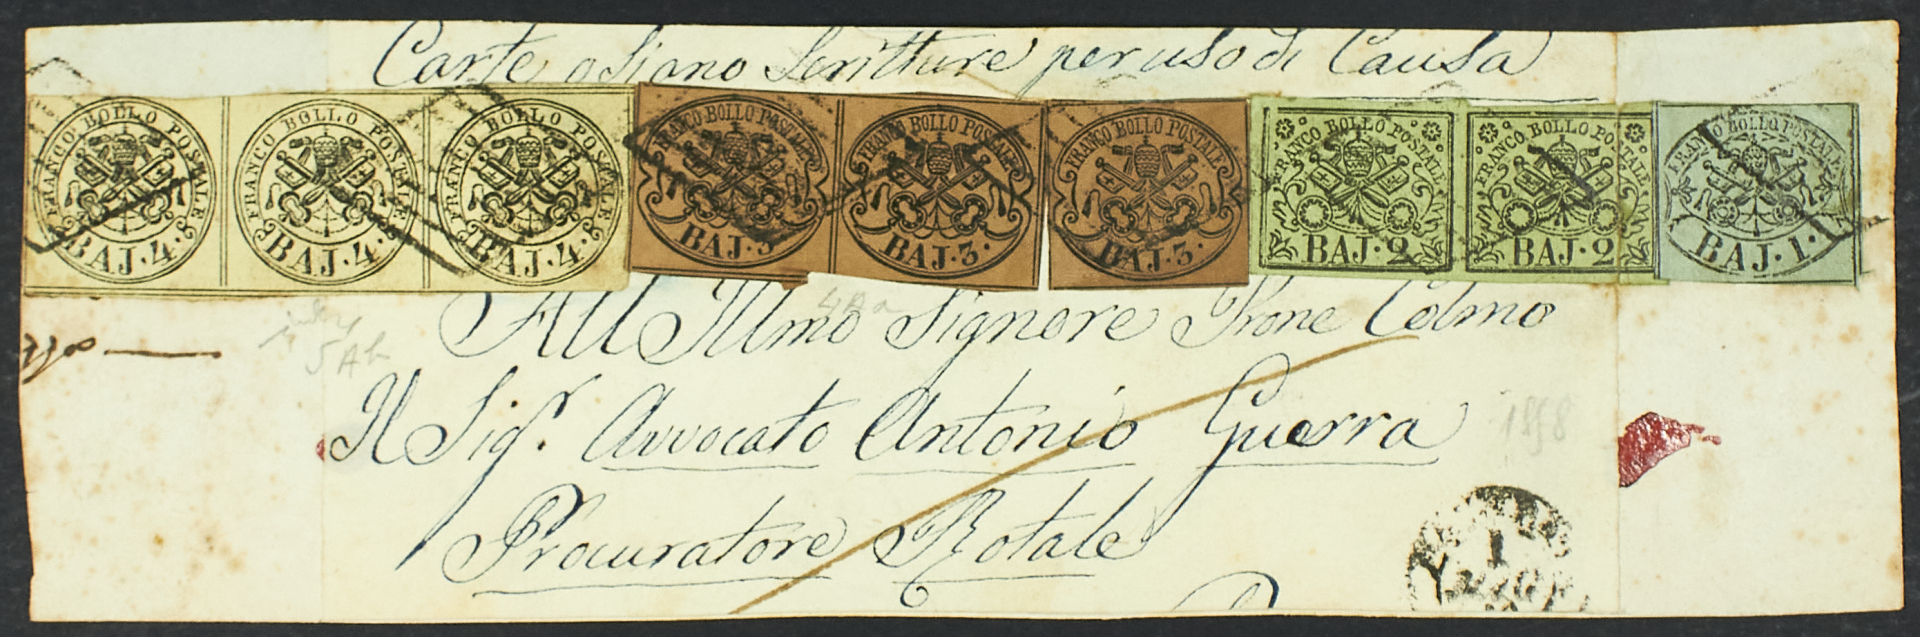 Carte o siano Scritture per uso di Causa
FRANCO BOLLO POSTALE
BAJ. 4.
FRANCO BOLLO POSTALE
BAJ. 4.
FRANCO BOLLO POSTALE
BAJ. 4.
FRANCO BOLLO POSTALE
BAJ. 3.
FRANCO BOLLO POSTALE
BAJ. 3.
FRANCO BOLLO POSTALE
BAJ. 3.
FRANCO BOLLO POSTALE
BAJ. 2
FRANCO BOLLO POSTALE
BAJ. 2
FRANCO BOLLO POSTALE
BAJ. 1.
All Illmo Signore Prone Colmo
5Ab
Il Sigr. Avvocato Antonio Guerra
1858
Procuratore Rotale
1